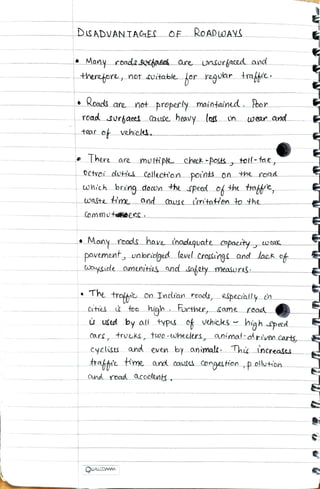 DISADVANTAGES OF ROADWAYS
• Many roads are unsurfaced and
therefore, not suitable for regular traffic.
• Roads are not properly maintained. Poor
road surfaces cause heavy loss in wear and
tear of vehicles.
• There are multiple check-posts, toll-tax,
octroi duties collection points on the road
which bring down the speed of the traffic,
waste time and cause irritation to the
commuters.
• Many roads have inadequate capacity, weak
pavement, unbridged level crossings and lack of
wayside amenities and safety measures.
• The traffic on Indian roads, especially in
cities is too high. Further, same road
is used by all types of vehicles - high speed
cars, trucks, two-wheelers, animal-driven carts,
cyclists and even by animals. This increases
traffic time and causes congestion, pollution
and road accidents.